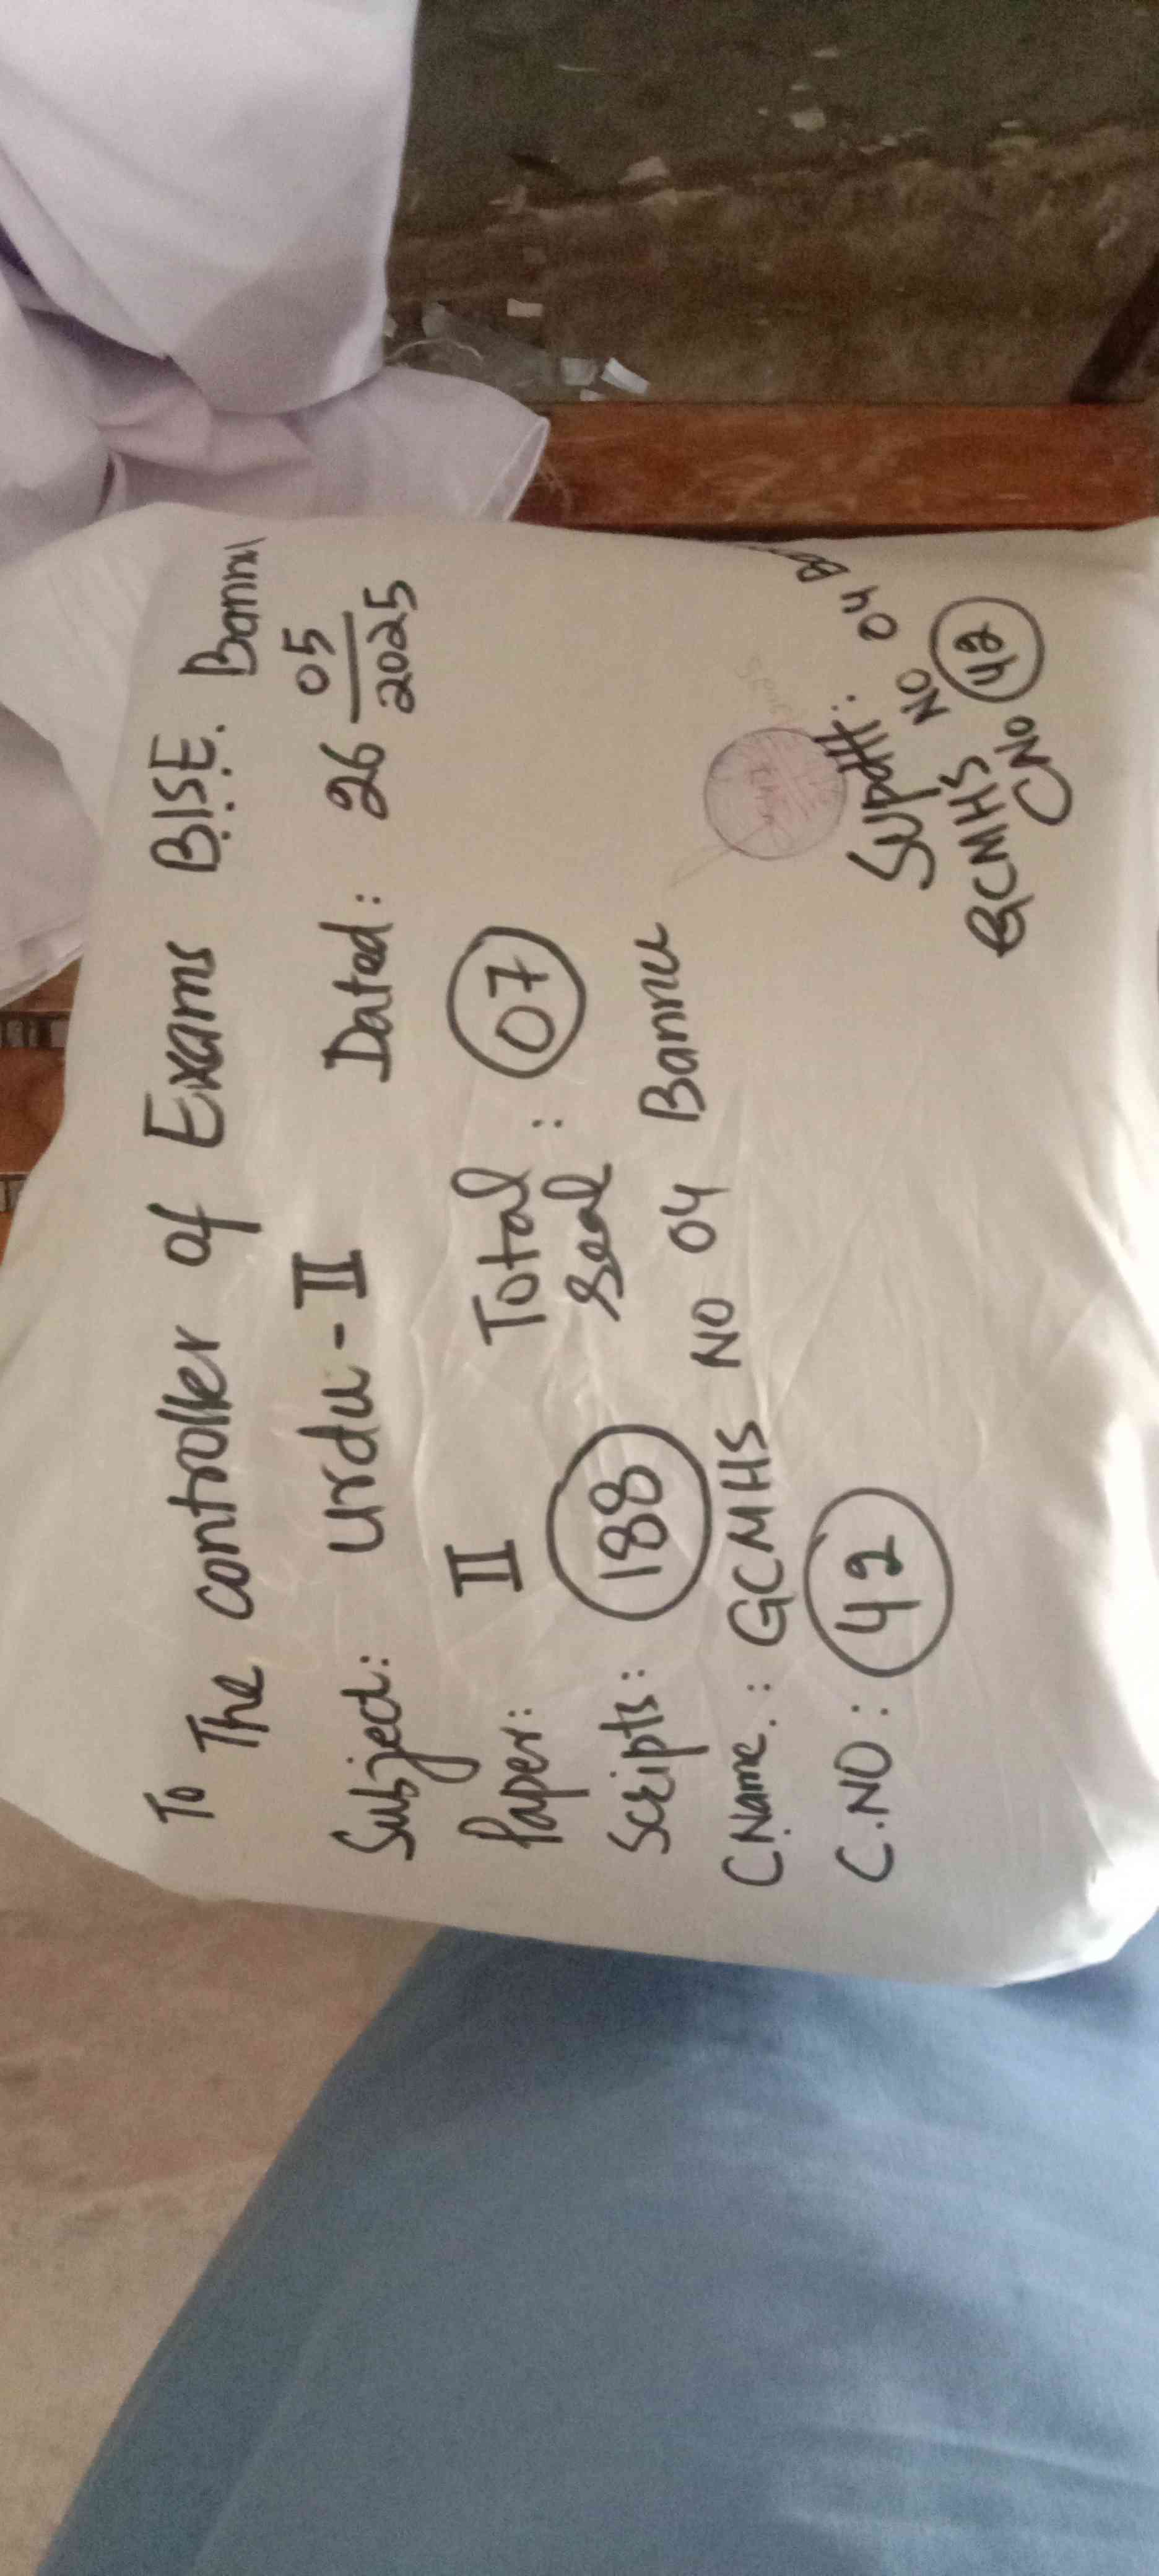 To
The controller of Exams B.I.S.E. Bannu
Subject: Urdu - II Dated: 26 05/2025
Paper: II Total Seal : 07
Scripts: 188
C Name. : GCMHS NO 04 Bannu
C.NO : 42
Supdtt:
GCMHS NO 04
C NO 42